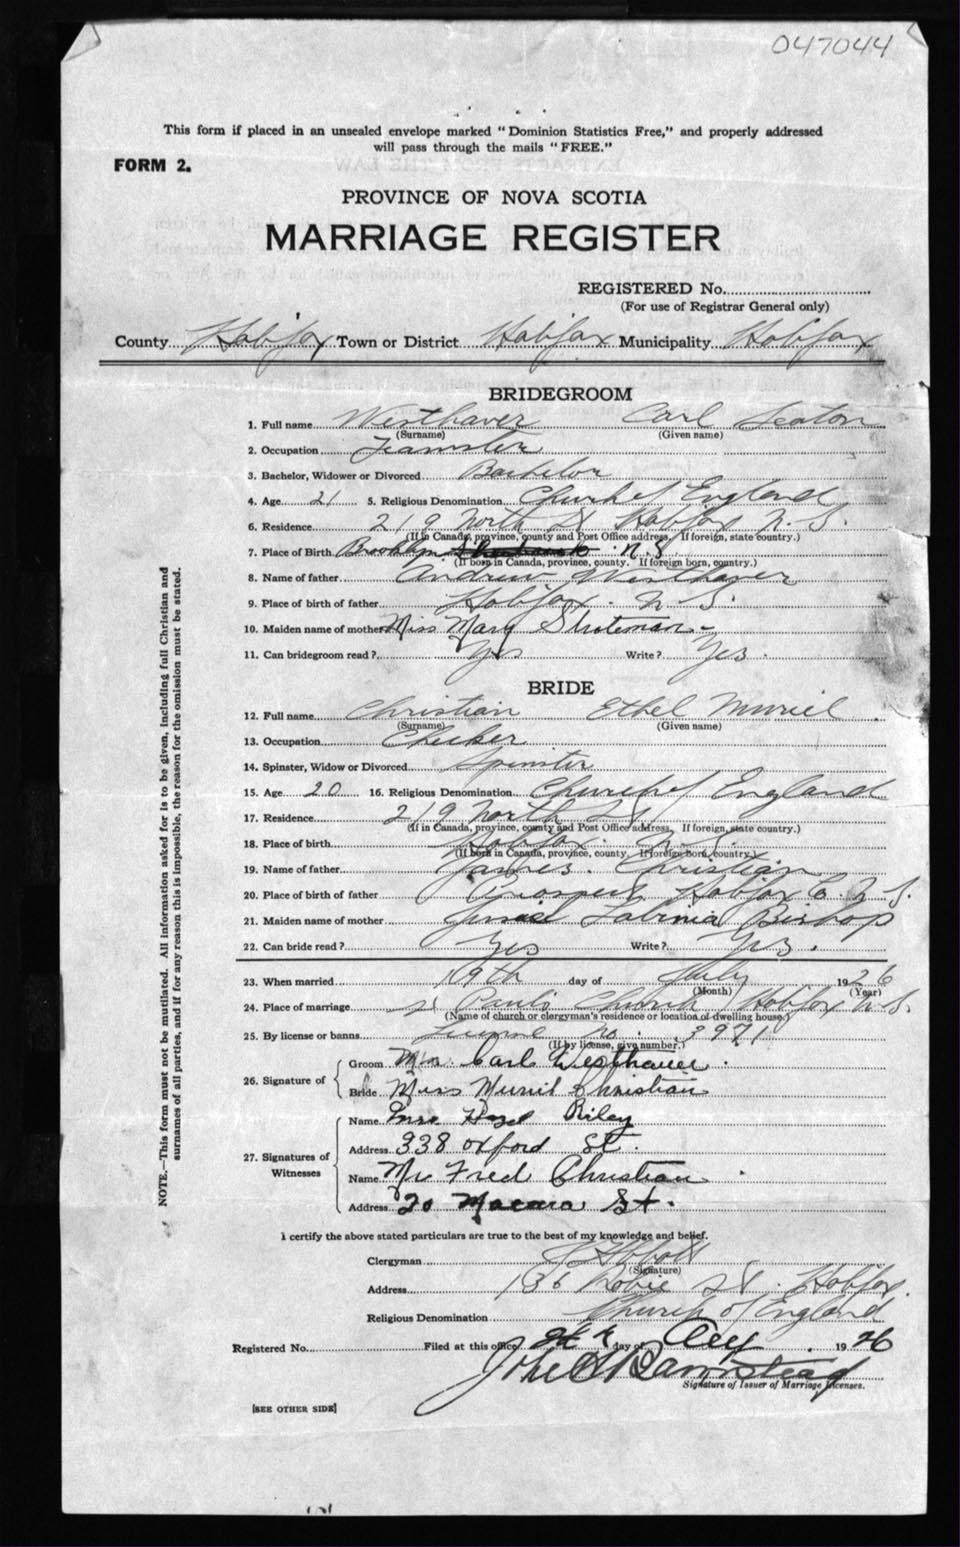 047044
This form if placed in an unsealed envelope marked "Dominion Statistics Free," and properly addressed
will pass through the mails "FREE."
FORM 2.
PROVINCE OF NOVA SCOTIA
MARRIAGE REGISTER
REGISTERED No.
(For use of Registrar General only)
County Halifax Town or District Halifax Municipality Halifax
BRIDEGROOM
1. Full name Westhaver Carl Seaton
(Surname) (Given name)
2. Occupation Teamster
3. Bachelor, Widower or Divorced Bachelor
4. Age 21 5. Religious Denomination Church of England
6. Residence 219 North St Halifax N.S.
(If in Canada, province, county and Post Office address. If foreign, state country.)
7. Place of Birth Brooklyn N.S.
(If born in Canada, province, county. If foreign born, country.)
8. Name of father Andrew Westhaver
9. Place of birth of father Halifax. N.S.
10. Maiden name of mother Miss Mary
11. Can bridegroom read? Yes Write? Yes.
BRIDE
12. Full name Christian Ethel Muriel
(Surname) (Given name)
13. Occupation Checker
14. Spinster, Widow or Divorced Spinster
15. Age 20 16. Religious Denomination Church of England
17. Residence 219 North St
(If in Canada, province, county and Post Office address. If foreign, state country.)
18. Place of birth Halifax. N.S.
(If born in Canada, province, county. If foreign born, country.)
19. Name of father James. Christian
20. Place of birth of father Prospect, Halifax Co. N.S.
21. Maiden name of mother Bishop
22. Can bride read? Yes Write? Yes.
23. When married 19th day of July 1926
(Month) (Year)
24. Place of marriage St Paul's Church Halifax N.S.
(Name of church or clergyman's residence or location of dwelling house.)
25. By license or banns License No. 3971
(If by license, give number.)
26. Signature of
Groom Mr. Carl Westhaver.
Bride Miss Muriel Christian
27. Signatures of Witnesses
Name Mrs. Hazel Riley
Address 338 Oxford St.
Name Mr Fred Christian
Address 20 Macara St.
I certify the above stated particulars are true to the best of my knowledge and belief.
Clergyman
(Signature)
Address 136 Robie St. Halifax.
Religious Denomination Church of England
Registered No. Filed at this office day of 1926
Signature of Issuer of Marriage Licenses.
[SEE OTHER SIDE]
NOTE.—This form must not be mutilated. All information asked for is to be given, including full Christian and
surnames of all parties, and if for any reason this is impossible, the reason for the omission must be stated.